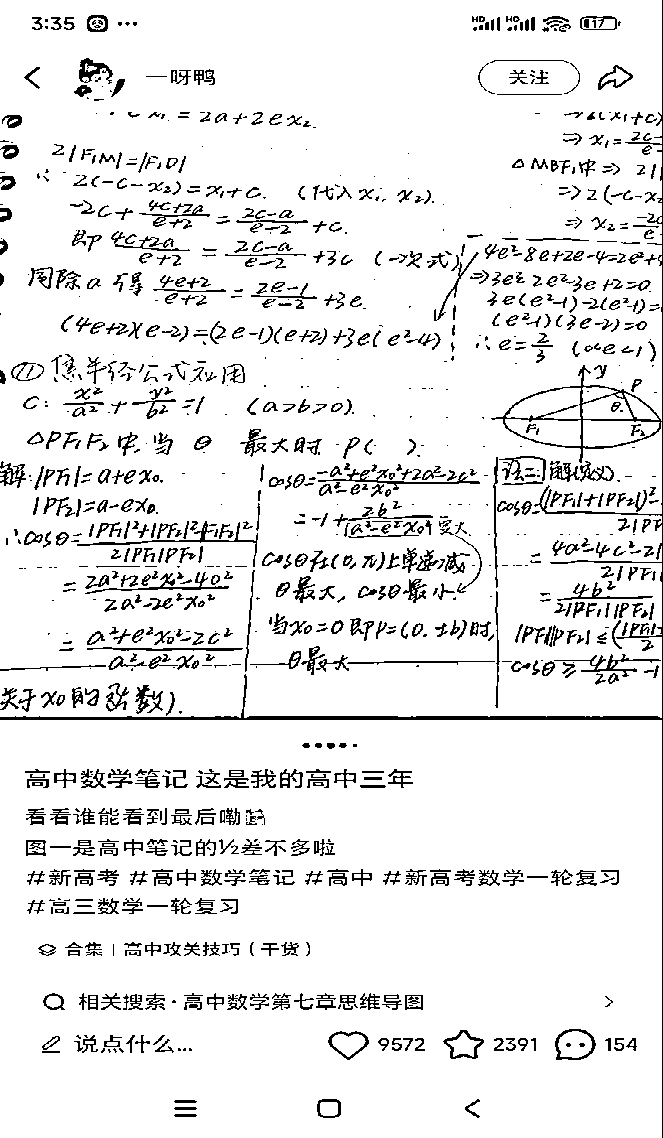 3:35 ... HD HD 17
一呀鸭 关注
= 2a+2ex₂
2|F₁M|=|F₁D|
∴ 2(-c-x₂)=x₁+c. (代入x₁, x₂).
-2c+\frac{4c+2a}{e+2}=\frac{2c-a}{e-2}+c.
即\frac{4c+2a}{e+2}=\frac{2c-a}{e-2}+3c (一次式)
同除a得\frac{4e+2}{e+2}=\frac{2e-1}{e-2}+3e.
(4e+2)(e-2)=(2e-1)(e+2)+3e(e²-4)
⇒ x₁=\frac{2c-
△MBF₁中⇒ 2|
⇒2(-c-x₂
⇒ x₂=\frac{-2c
4e²-8e+2e-4=2e²+4
⇒3e³-2e²-3e+2=0.
3e(e²-1)-2(e²-1)=
(e²-1)(3e-2)=0
∴e=\frac{2}{3} (0<e<1)
⑪ 焦半径公式应用
C: \frac{x²}{a²}+\frac{y²}{b²}=1 (a>b>0).
△PF₁F₂中,当θ最大时 P( ).
y P θ. F₁ F₂
解:|PF₁|=a+ex₀.
|PF₂|=a-ex₀.
∴cosθ=\frac{|PF₁|²+|PF₂|²-|F₁F₂|²}{2|PF₁||PF₂|}
=\frac{2a²+2e²x₀²-4c²}{2a²-2e²x₀²}
=\frac{a²+e²x₀²-2c²}{a²-e²x₀²}
关于x₀的函数).
cosθ=\frac{-a²+e²x₀²+2a²-2c²}{a²-e²x₀²}
=-1+\frac{2b²}{a²-e²x₀²} 变大
cosθ在(0,π)上单递减
θ最大,cosθ最小.
当x₀=0即P=(0,±b)时,
θ最大
法二:解(定义).
cosθ=\frac{(|PF₁|+|PF₂|)²-}{2|PF
=\frac{4a²-4c²-2|}{2|PF₁|
=\frac{4b²}{2|PF₁||PF₂|
|PF₁||PF₂|≤(\frac{|PF₁|+}{2}
cosθ≥\frac{4b²}{2a²}-1
高中数学笔记 这是我的高中三年
看看谁能看到最后嘞
图一是高中笔记的½差不多啦
#新高考 #高中数学笔记 #高中 #新高考数学一轮复习
#高三数学一轮复习
合集 | 高中攻关技巧（干货）
相关搜索·高中数学第七章思维导图
说点什么... 9572 2391 154